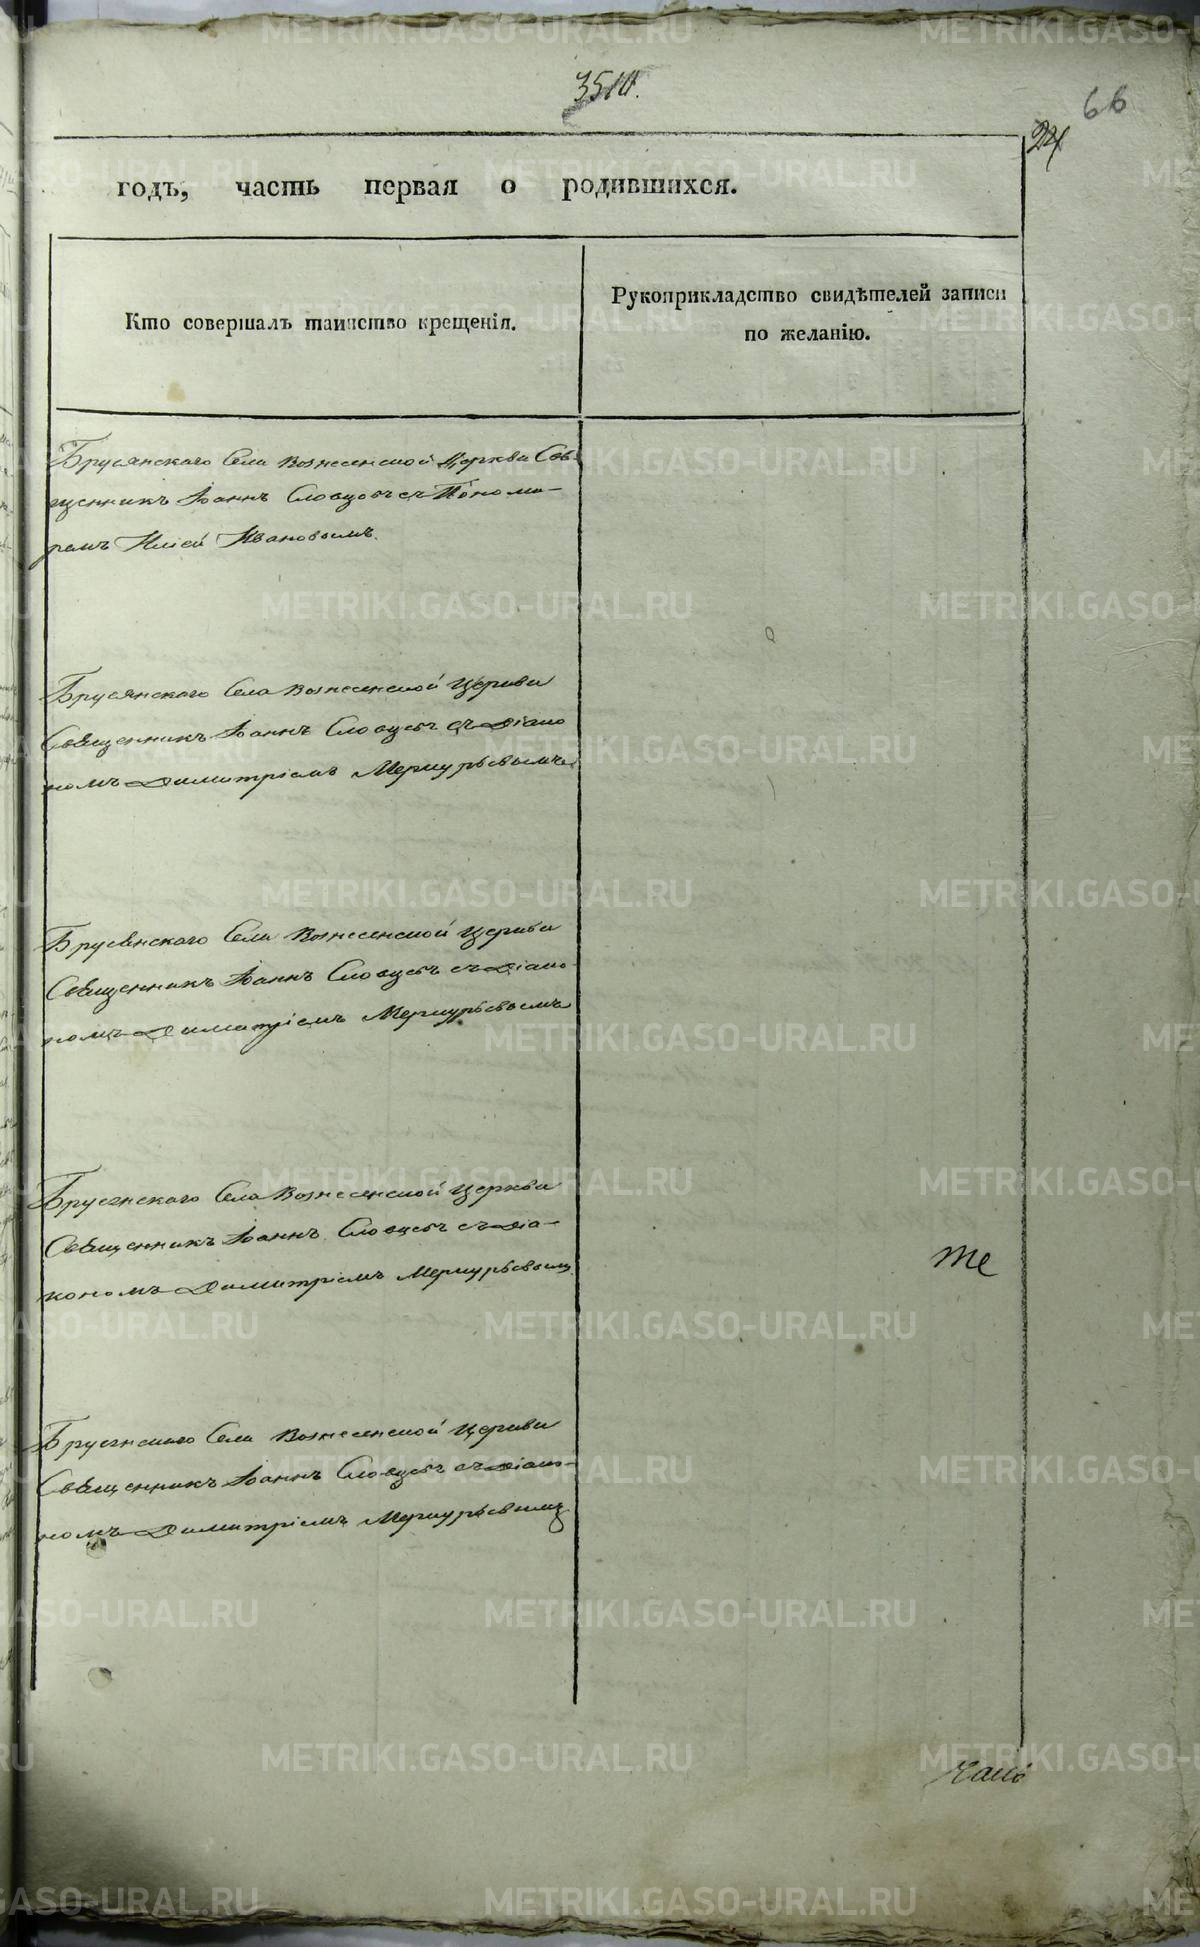 351
66
24
годъ, часть первая о родившихся.
Кто совершалъ таинство крещенія.
Рукоприкладство свидѣтелей записи
по желанію.
Брусянскаго Села Вознесенской Церкви Свя-
щенникъ Іоаннъ Словцовъ съ Понома-
ремъ Иліей Ивановымъ.
Брусянскаго Села Вознесенской Церкви
Священникъ Іоаннъ Словцовъ съ Діако
номъ Димитріемъ Меркурьевымъ
Брусянскаго Села Вознесенской Церкви
Священникъ Іоаннъ Словцовъ съ Діако-
номъ Димитріемъ Меркурьевымъ
Брусянскаго Села Вознесенской Церкви
Священникъ Іоаннъ Словцовъ съ Діа-
кономъ Димитріемъ Меркурьевымъ
те
Брусянскаго Села Вознесенской Церкви
Священникъ Іоаннъ Словцовъ съ Діако-
номъ Димитріемъ Меркурьевымъ
METRIKI.GASO-URAL.RU